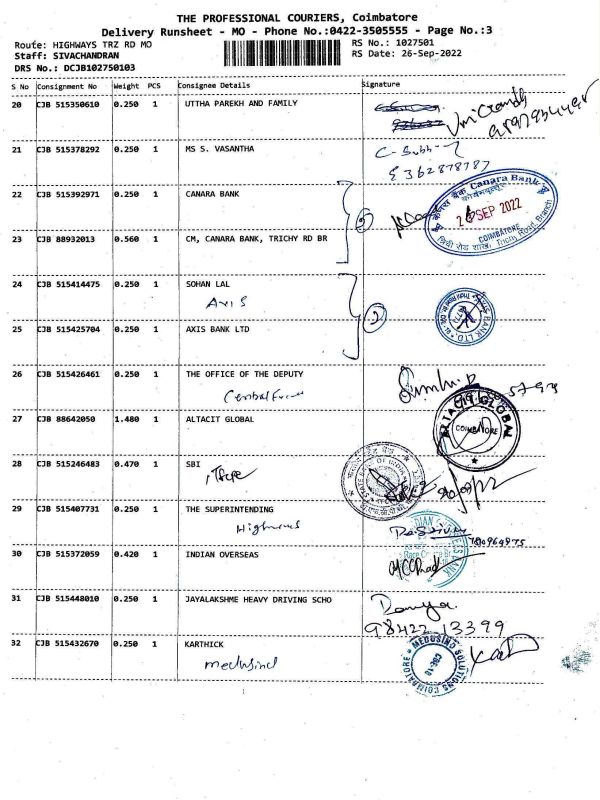 THE PROFESSIONAL COURIERS, Coimbatore
Delivery Runsheet - MO - Phone No.:0422-3505555 - Page No.:3
Route: HIGHWAYS TRZ RD MO
RS No.: 1027501
Staff: SIVACHANDRAN
RS Date: 26-Sep-2022
DRS No.: DCJB102750103
S No Consignment No Weight PCS Consignee Details Signature
20 CJB 515350610 0.250 1 UTTHA PAREKH AND FAMILY
21 CJB 515378292 0.250 1 MS S. VASANTHA
22 CJB 515392971 0.250 1 CANARA BANK
Canara Bank
SEP 2022
COIMBATORE
23 CJB 88932013 0.560 1 CM, CANARA BANK, TRICHY RD BR
24 CJB 515414475 0.250 1 SOHAN LAL
Axis
25 CJB 515425704 0.250 1 AXIS BANK LTD
26 CJB 515426461 0.250 1 THE OFFICE OF THE DEPUTY
27 CJB 88642050 1.480 1 ALTACIT GLOBAL
ALTACIT GLOBAL
COIMBATORE
28 CJB 515246483 0.470 1 SBI
29 CJB 515407731 0.250 1 THE SUPERINTENDING
Highways
30 CJB 515372059 0.420 1 INDIAN OVERSEAS
31 CJB 515448010 0.250 1 JAYALAKSHME HEAVY DRIVING SCHO
98422 13399
32 CJB 515432670 0.250 1 KARTHICK
medusind
MEDUSIND SOLUTIONS
COIMBATORE